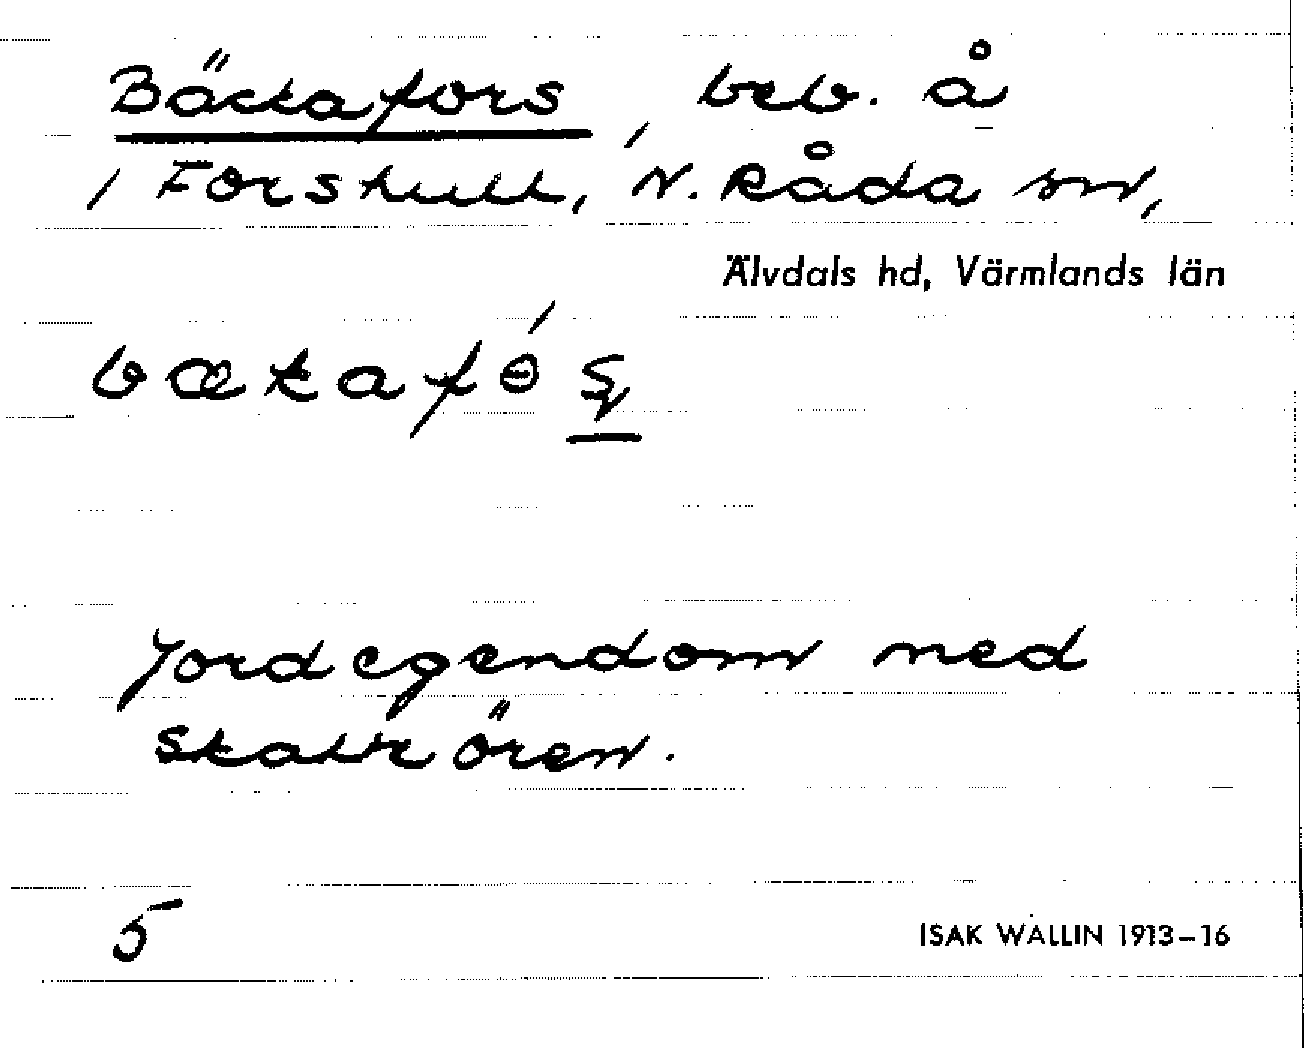 Bäckafors, beb. å
1 Forshult, N. Råda sn,
Älvdals hd, Värmlands län
Jordegendom med
skattören.
5
ISAK WALLIN 1913–16